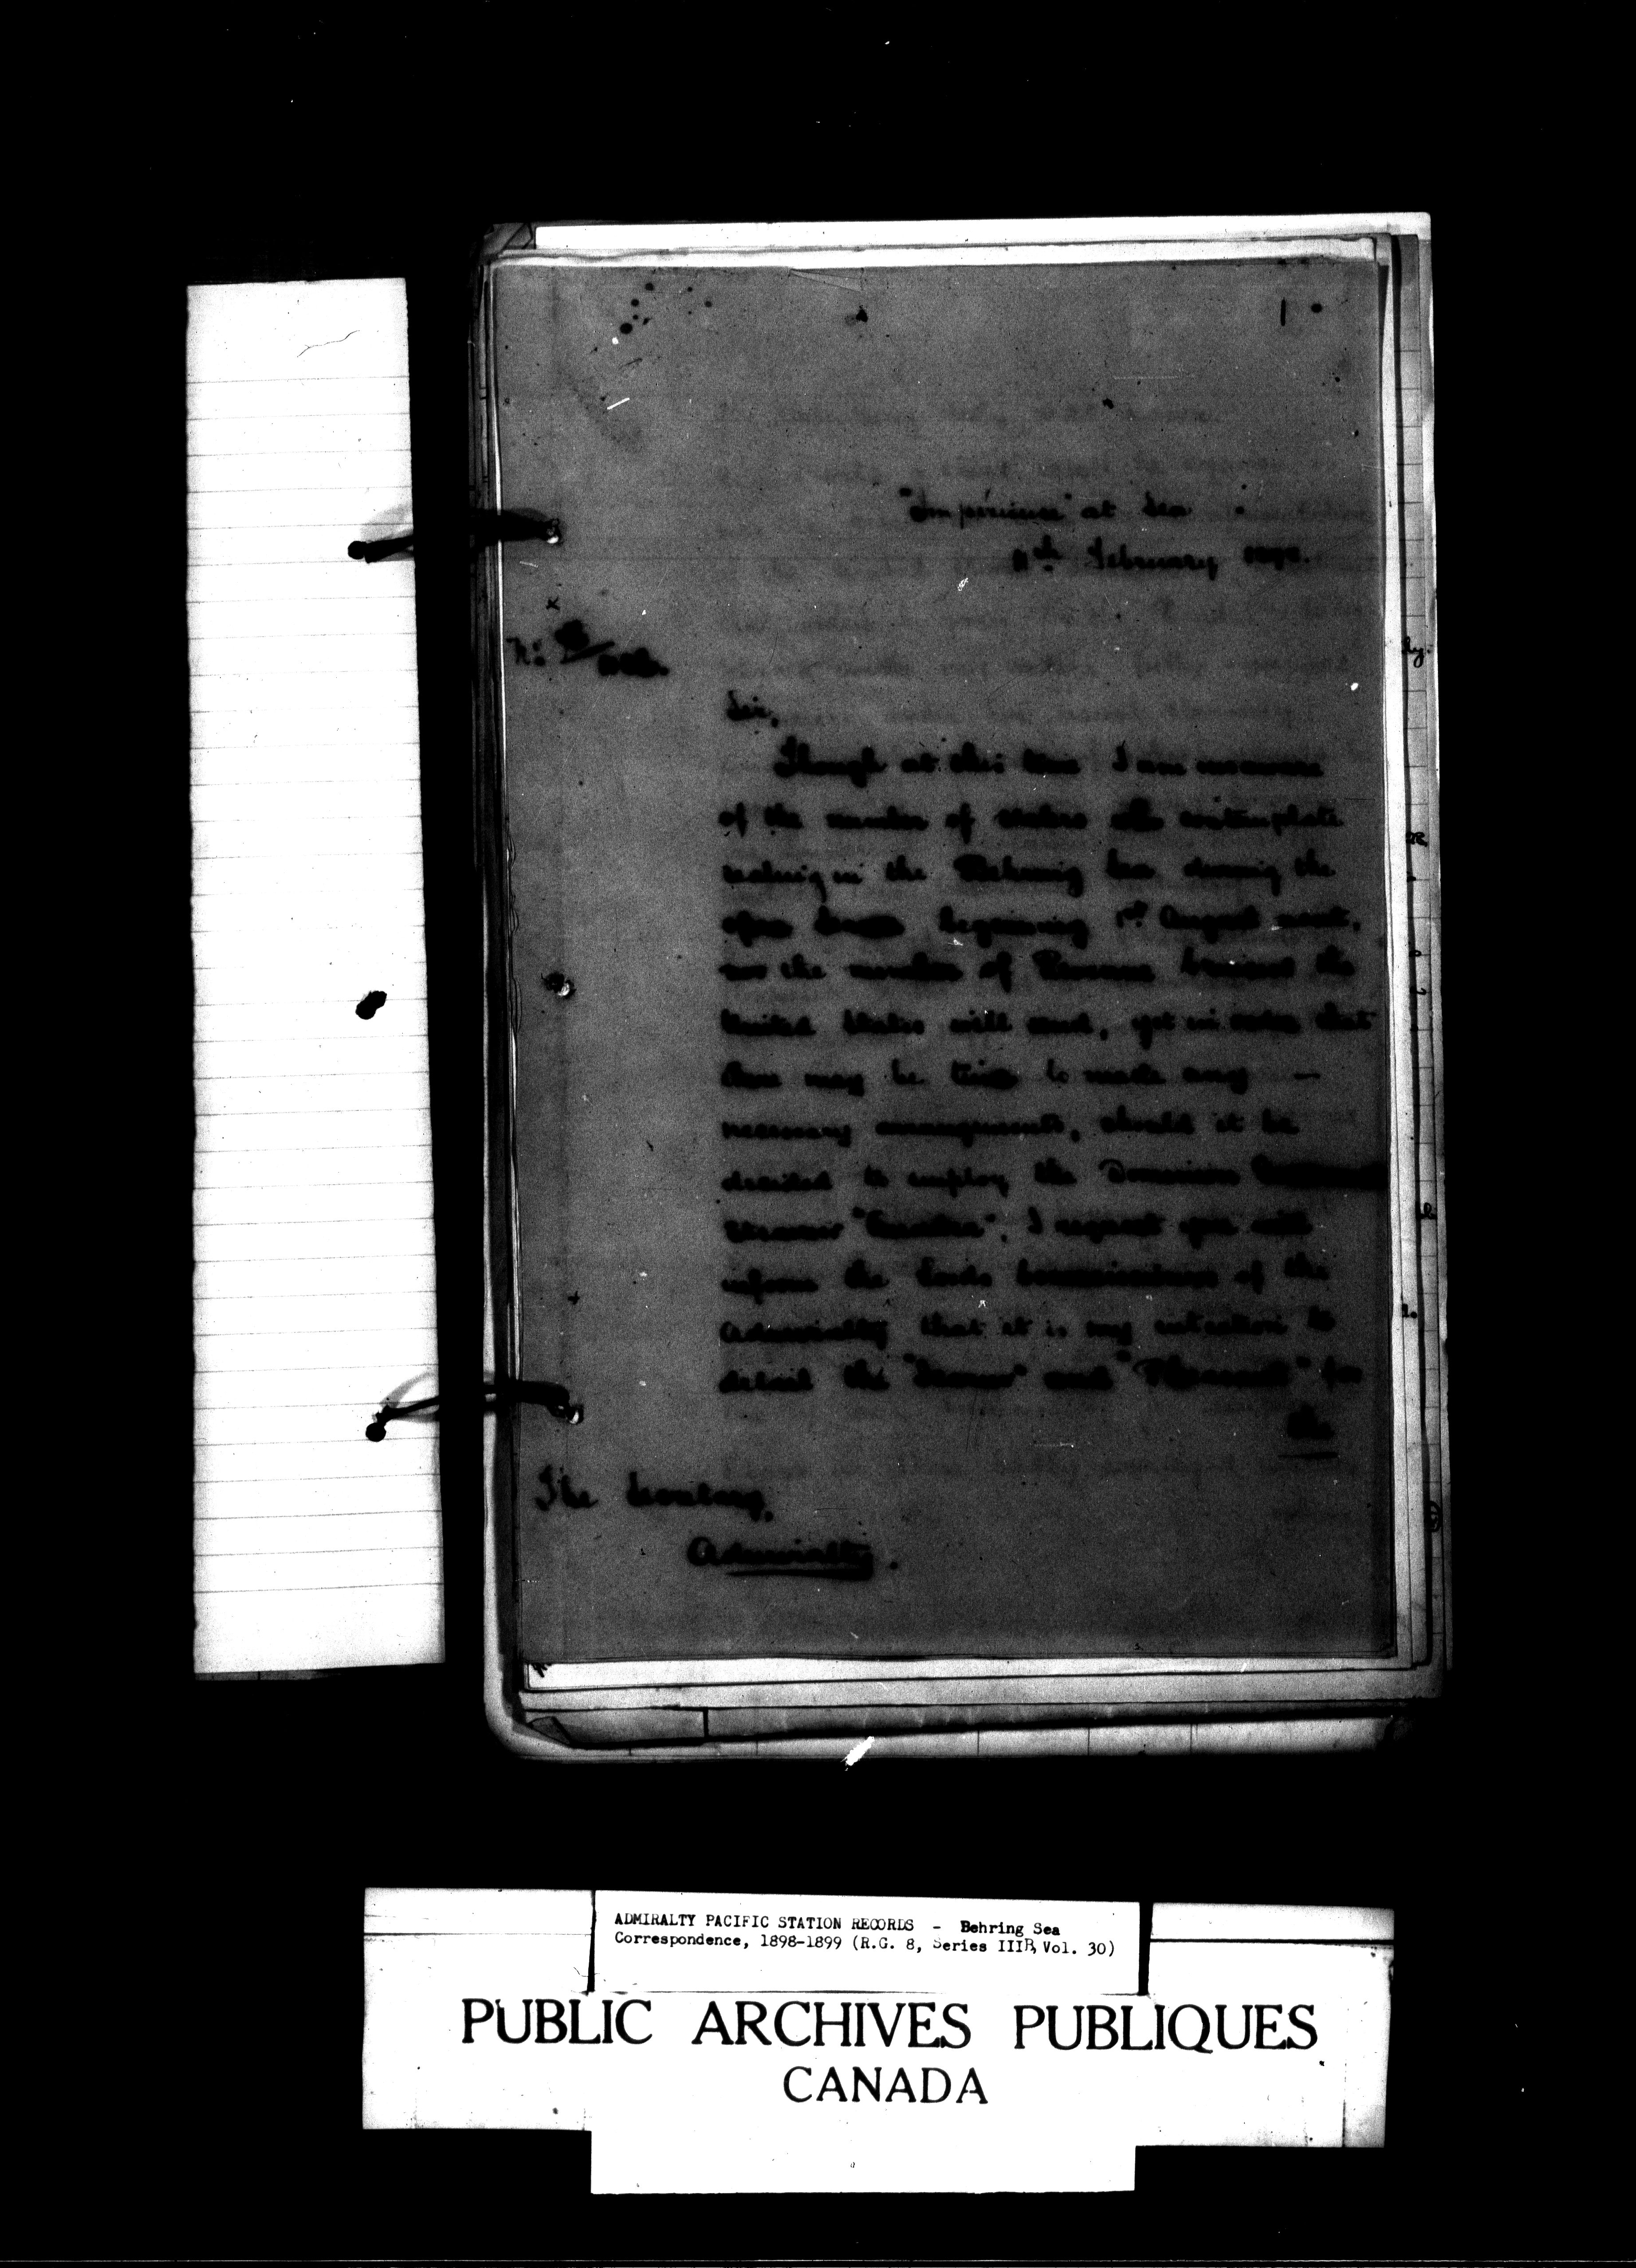 "Imperieuse" at Sea
11th February 1898.
No.
Sir,
Though at this time I am unaware
of the number of sealers who contemplate
sealing in the Behring Sea during the
open Season beginning 1st August next,
nor the number of Revenue Cruisers the
United States will send, yet in order that
there may be time to make any —
necessary arrangements, should it be
decided to employ the Dominion
Steamer "Quadra", I request you will
inform the Lords Commissioners of the
Admiralty that it is my intention to
detail the and "Pheasant" for
the
The Secretary,
Admiralty.
ADMIRALTY PACIFIC STATION RECORDS - Behring Sea
Correspondence, 1898-1899 (R.G. 8, Series IIIB, Vol. 30)
PUBLIC ARCHIVES PUBLIQUES
CANADA